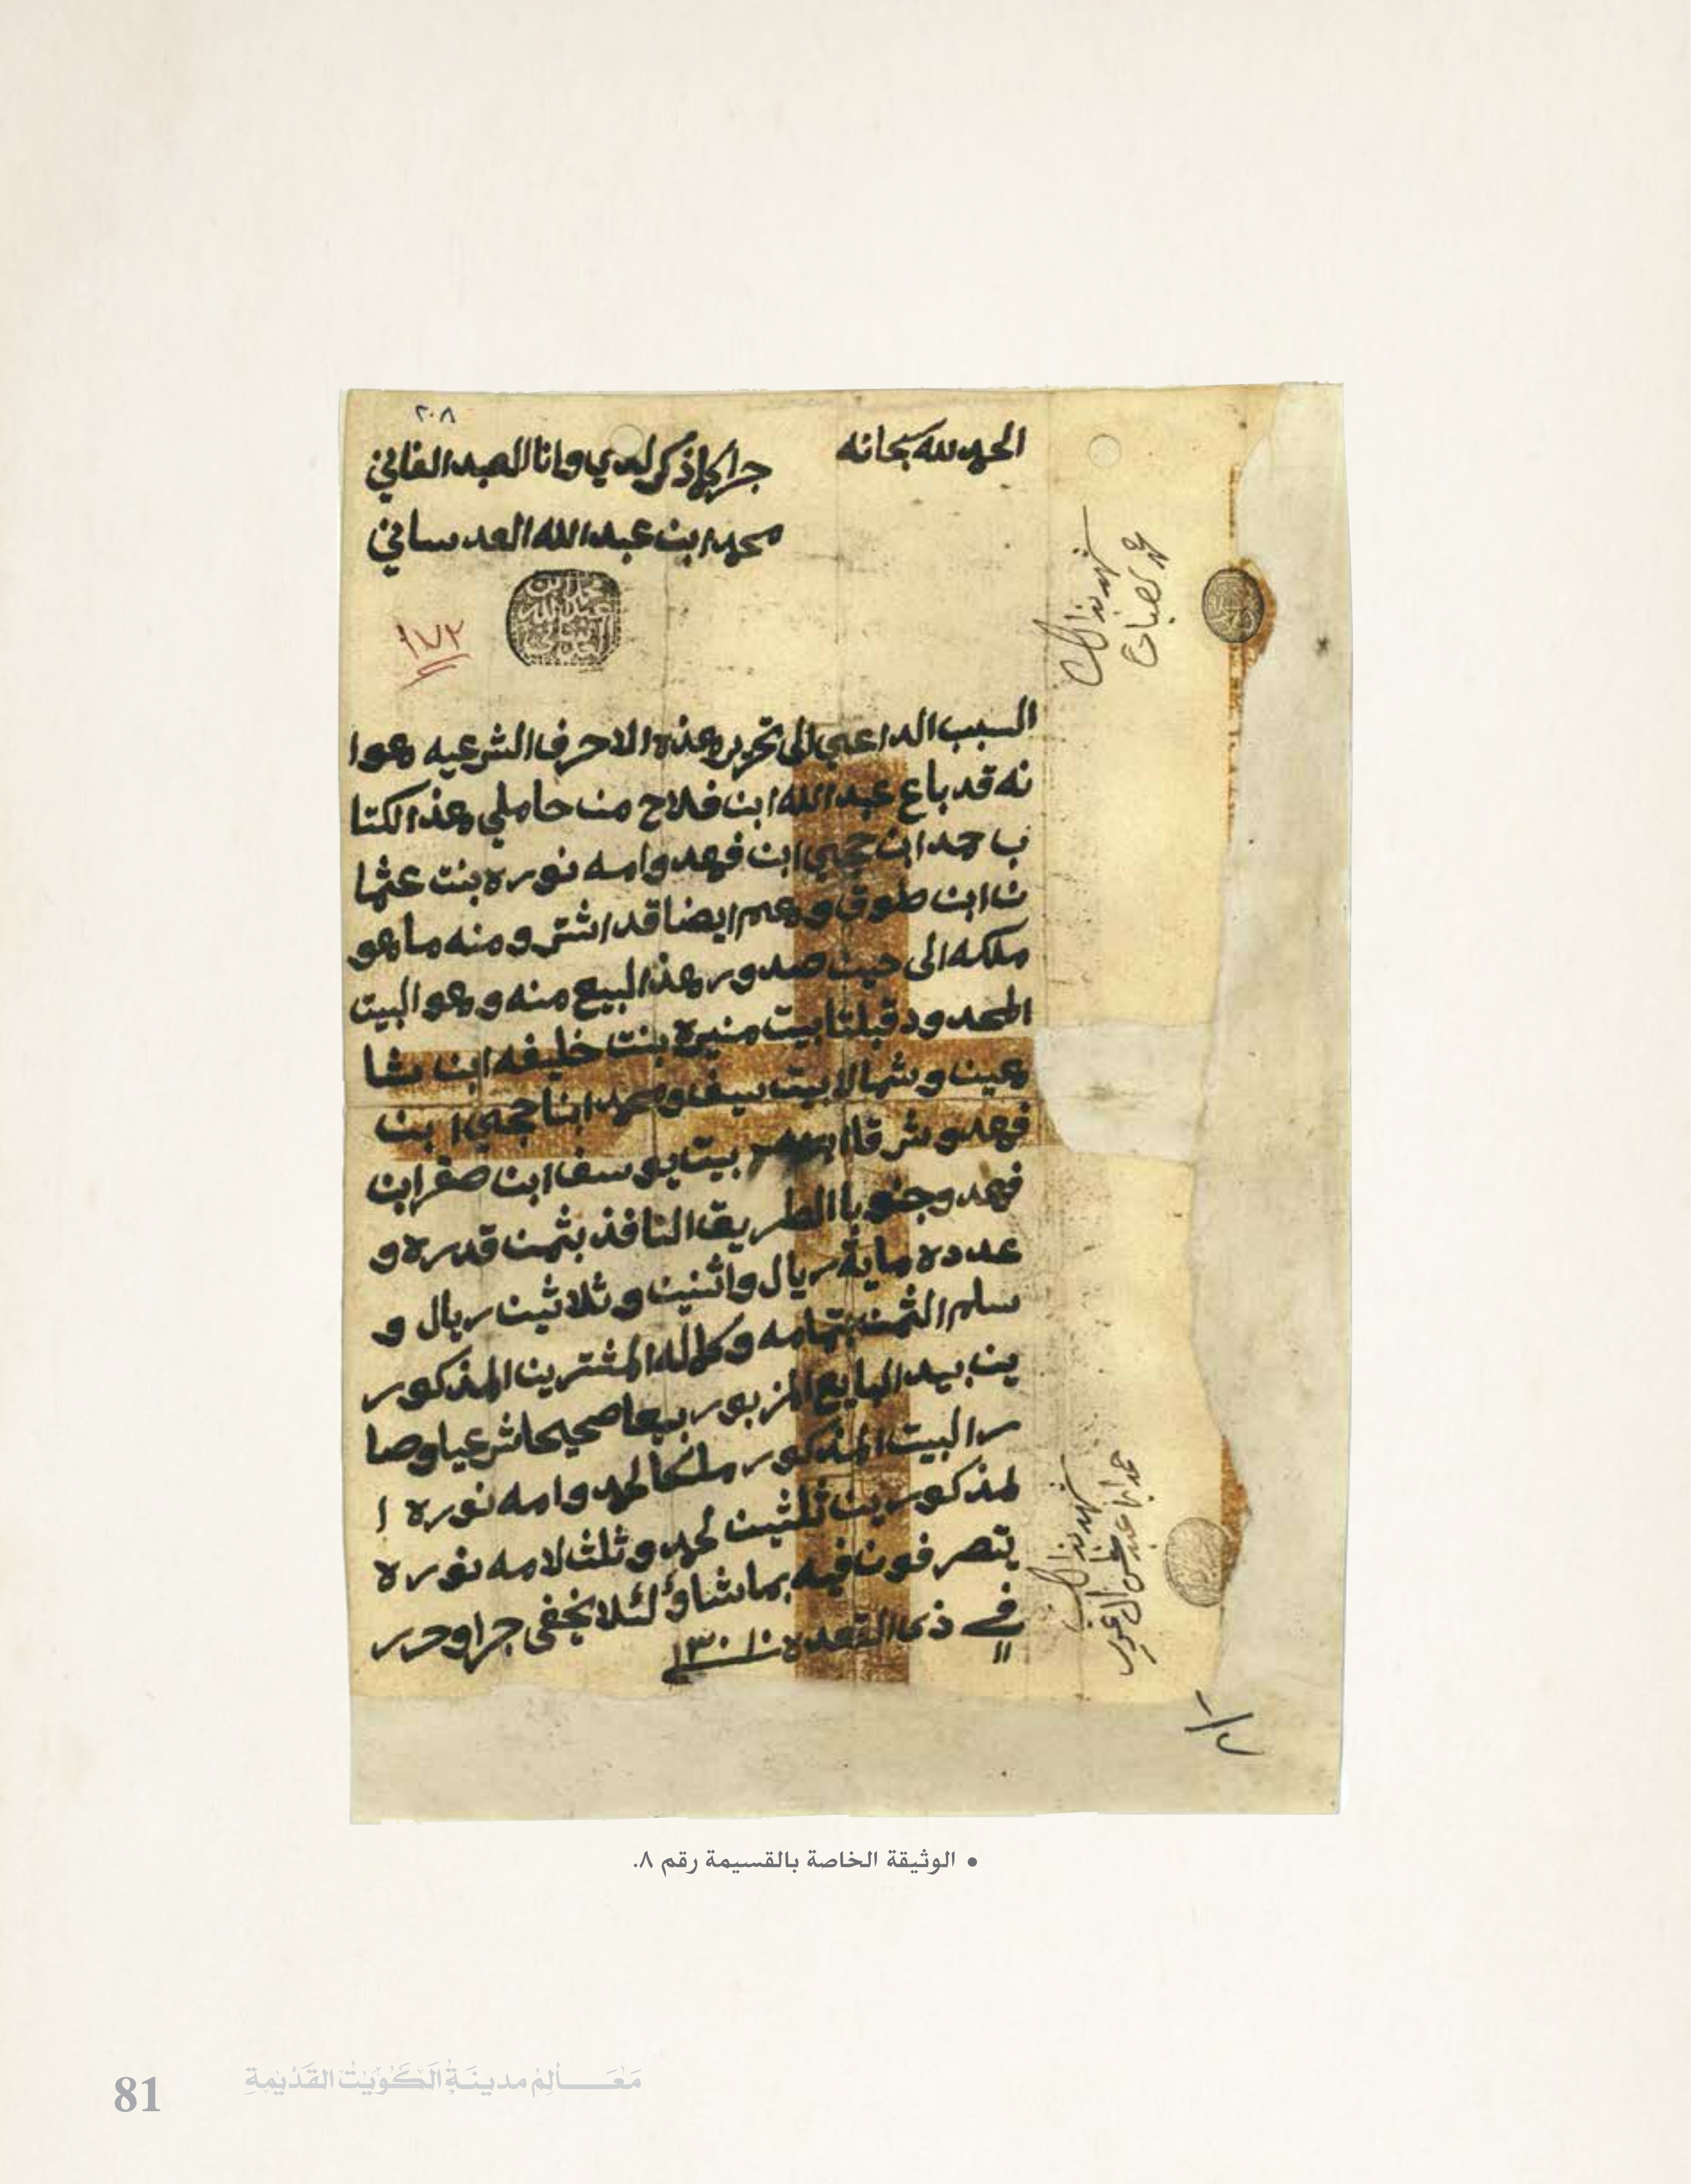 ٢٠٨
الحمد لله سبحانه
جرا كما ذكر لدي وانا العبد الفاني
محمد ابن عبد الله العدساني
محمد ابن عبد الله العدساني
١٧٢
السبب الداعي الى تحرير هذه الاحرف الشرعيه هوا
نه قد باع عبد الله ابن فلاح من حاملي هذ الكتا
ب حمد ابن حجي ابن فهد وامه نوره بنت عثما
ن ابن طوق وهم ايضا قد اشترو منه ما هو
ملكه الى حين صدور هذ البيع منه وهو البيت
المحدود قبلتا بيت منيره بنت خليفه ابن شا
هين وشمالا بيت سيف ومحمد ابنا حجي ابن
فهد وشرقا بيت يوسف ابن صقر ابن
فهد وجنوبا الطريق النافذ بثمن قدره و
عدده ماية ريال واثنين وثلاثين ريال و
سلم الثمن بتمامه وكماله المشترين المذكور
ين بيد البايع المزبور بيعا صحيحا شرعيا وصا
ر البيت المذكور ملكا لحمد وامه نوره ا
لمذكورين ثلثين لحمد وثلث لامه نوره
يتصرفون فيه بما شاؤ لئلا يخفى جرا وحرر
في ١١ ذى القعده سنة ١٣٠١
شهد بذالك
شهد بذالك
حمد ابن عبد
٢/١
• الوثيقة الخاصة بالقسيمة رقم ٨.
مَعَالِمُ مدينَةِ الكُوَيْتِ القَدِيْمَةِ
81